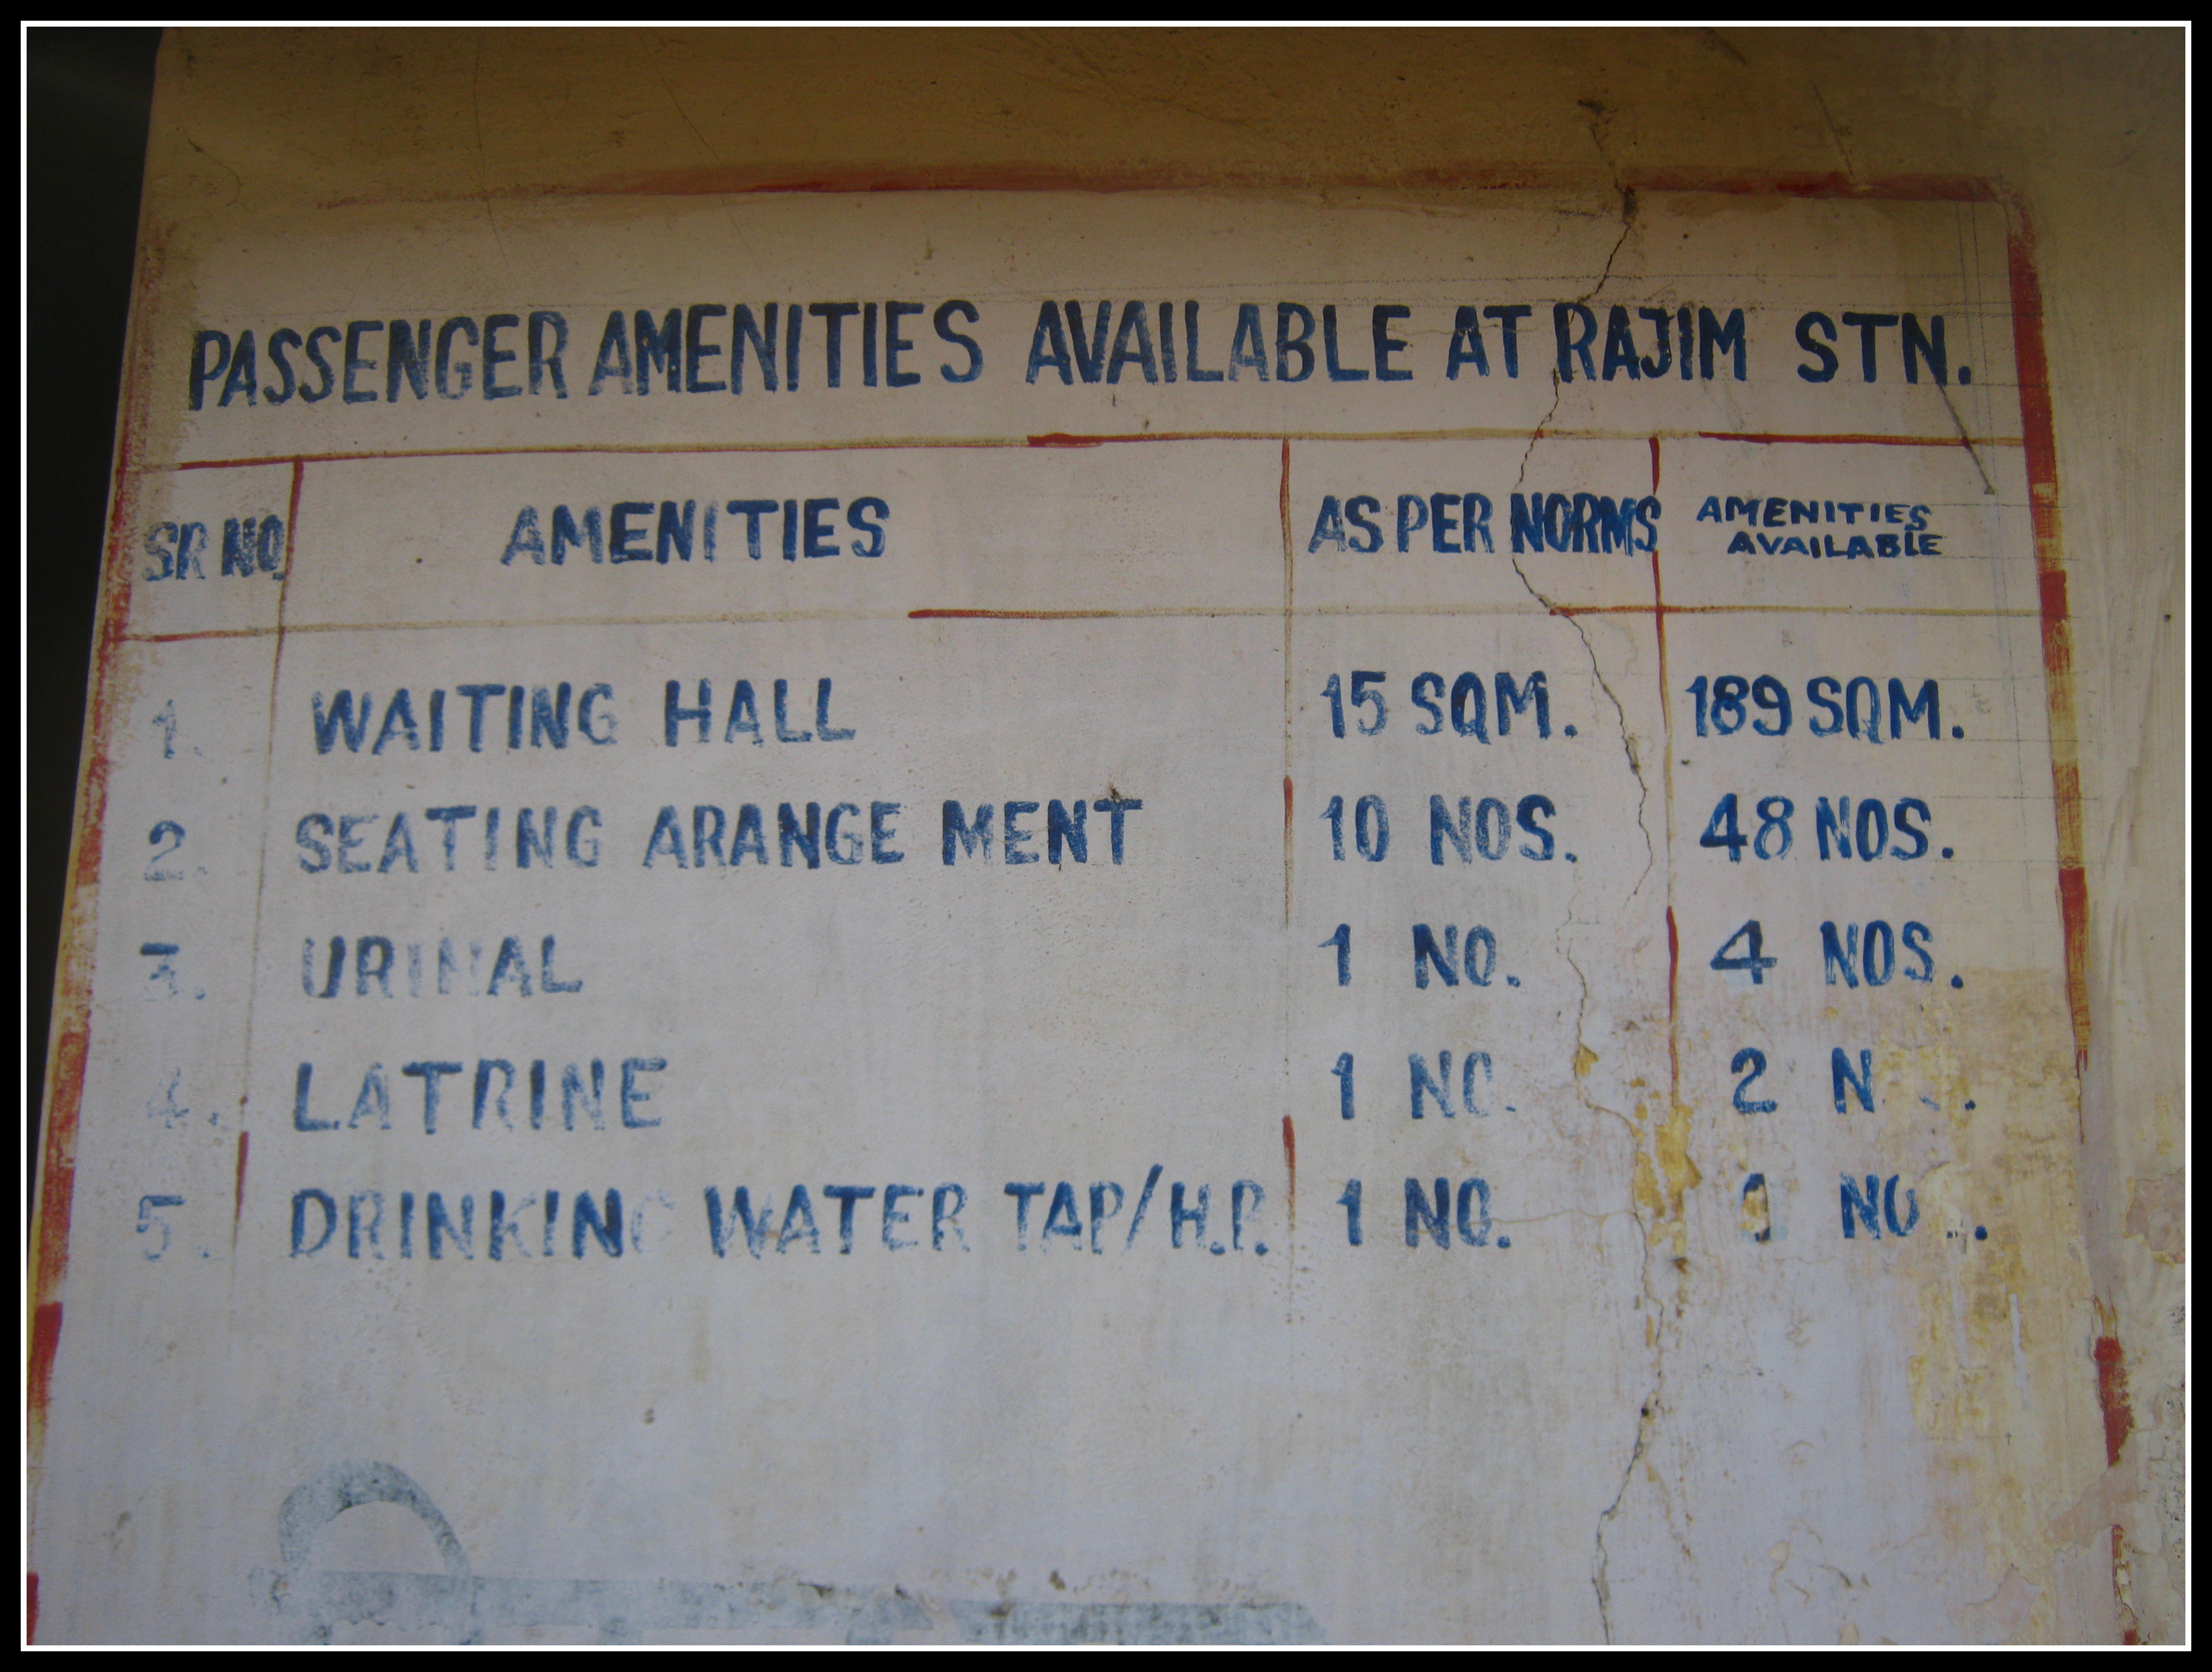 PASSENGER AMENITIES AVAILABLE AT RAJIM STN.
SR NO. AMENITIES AS PER NORMS AMENITIES AVAILABLE
1. WAITING HALL 15 SQM. 189 SQM.
2. SEATING ARANGE MENT 10 NOS. 48 NOS.
3. URINAL 1 NO. 4 NOS.
4. LATRINE 1 NO. 2
5. DRINKING WATER TAP/H.P. 1 NO. NO